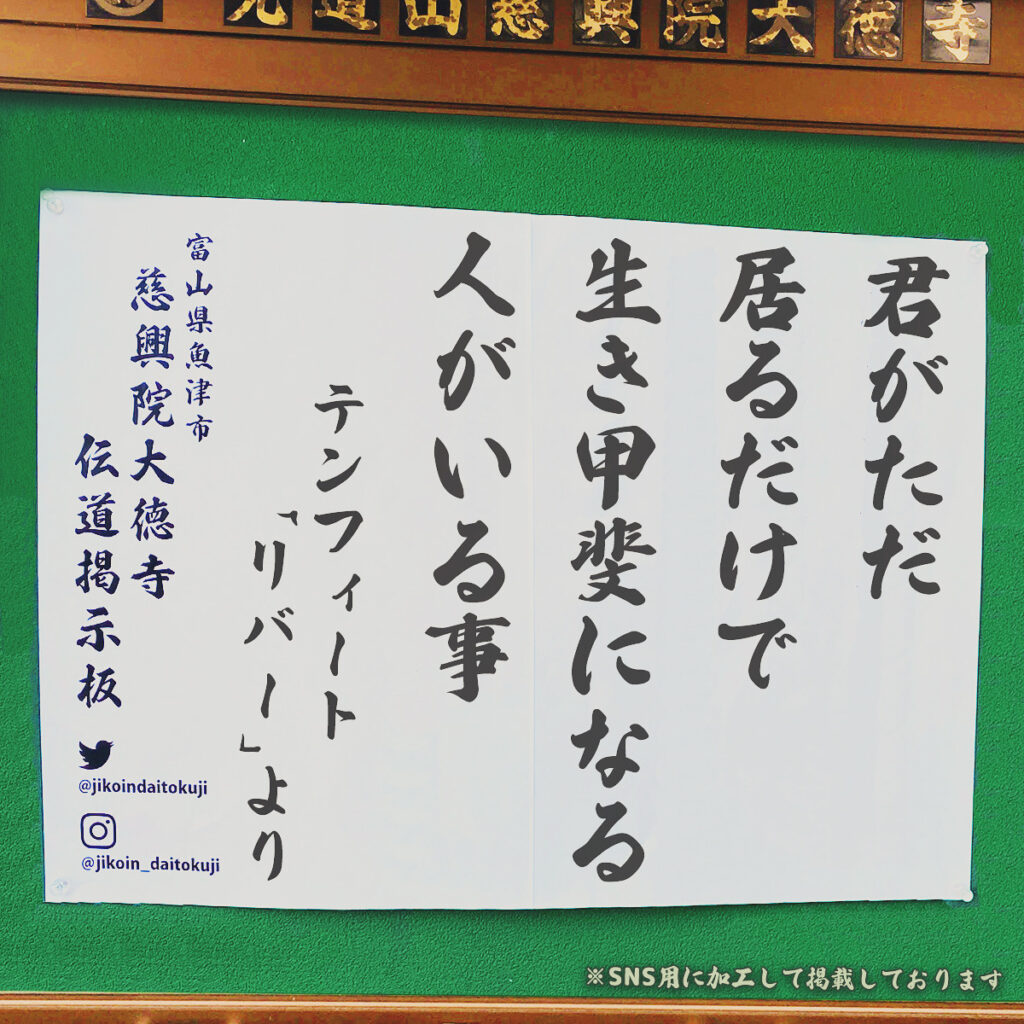 光道山慈興院大徳寺
君がただ
居るだけで
生き甲斐になる
人がいる事
テンフィート
「リバー」より
富山県魚津市
慈興院大徳寺
伝道掲示板
@jikoindaitokuji
@jikoin_daitokuji
※SNS用に加工して掲載しております